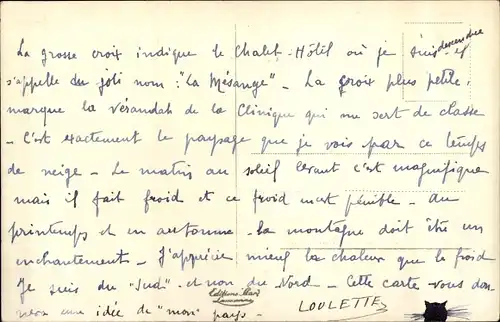 La grosse croix indique le Chalet-Hôtel où je suis descendue et
s'appelle du joli nom: "La Mésange" - La croix plus petite,
marque la vérandah de la Clinique qui me sert de classe
- C'est exactement le paysage que je vois par ce temps
de neige - Le matin au soleil levant c'est magnifique
mais il fait froid et ce froid m'est pénible - Au
printemps et en automne - la montagne doit être un
enchantement - J'apprécie mieux la chaleur que le froid
Je suis du "Sud" - et non du Nord - Cette carte vous don
nera une idée de "mon" pays -
Editions
Lausanne
LOULETTE